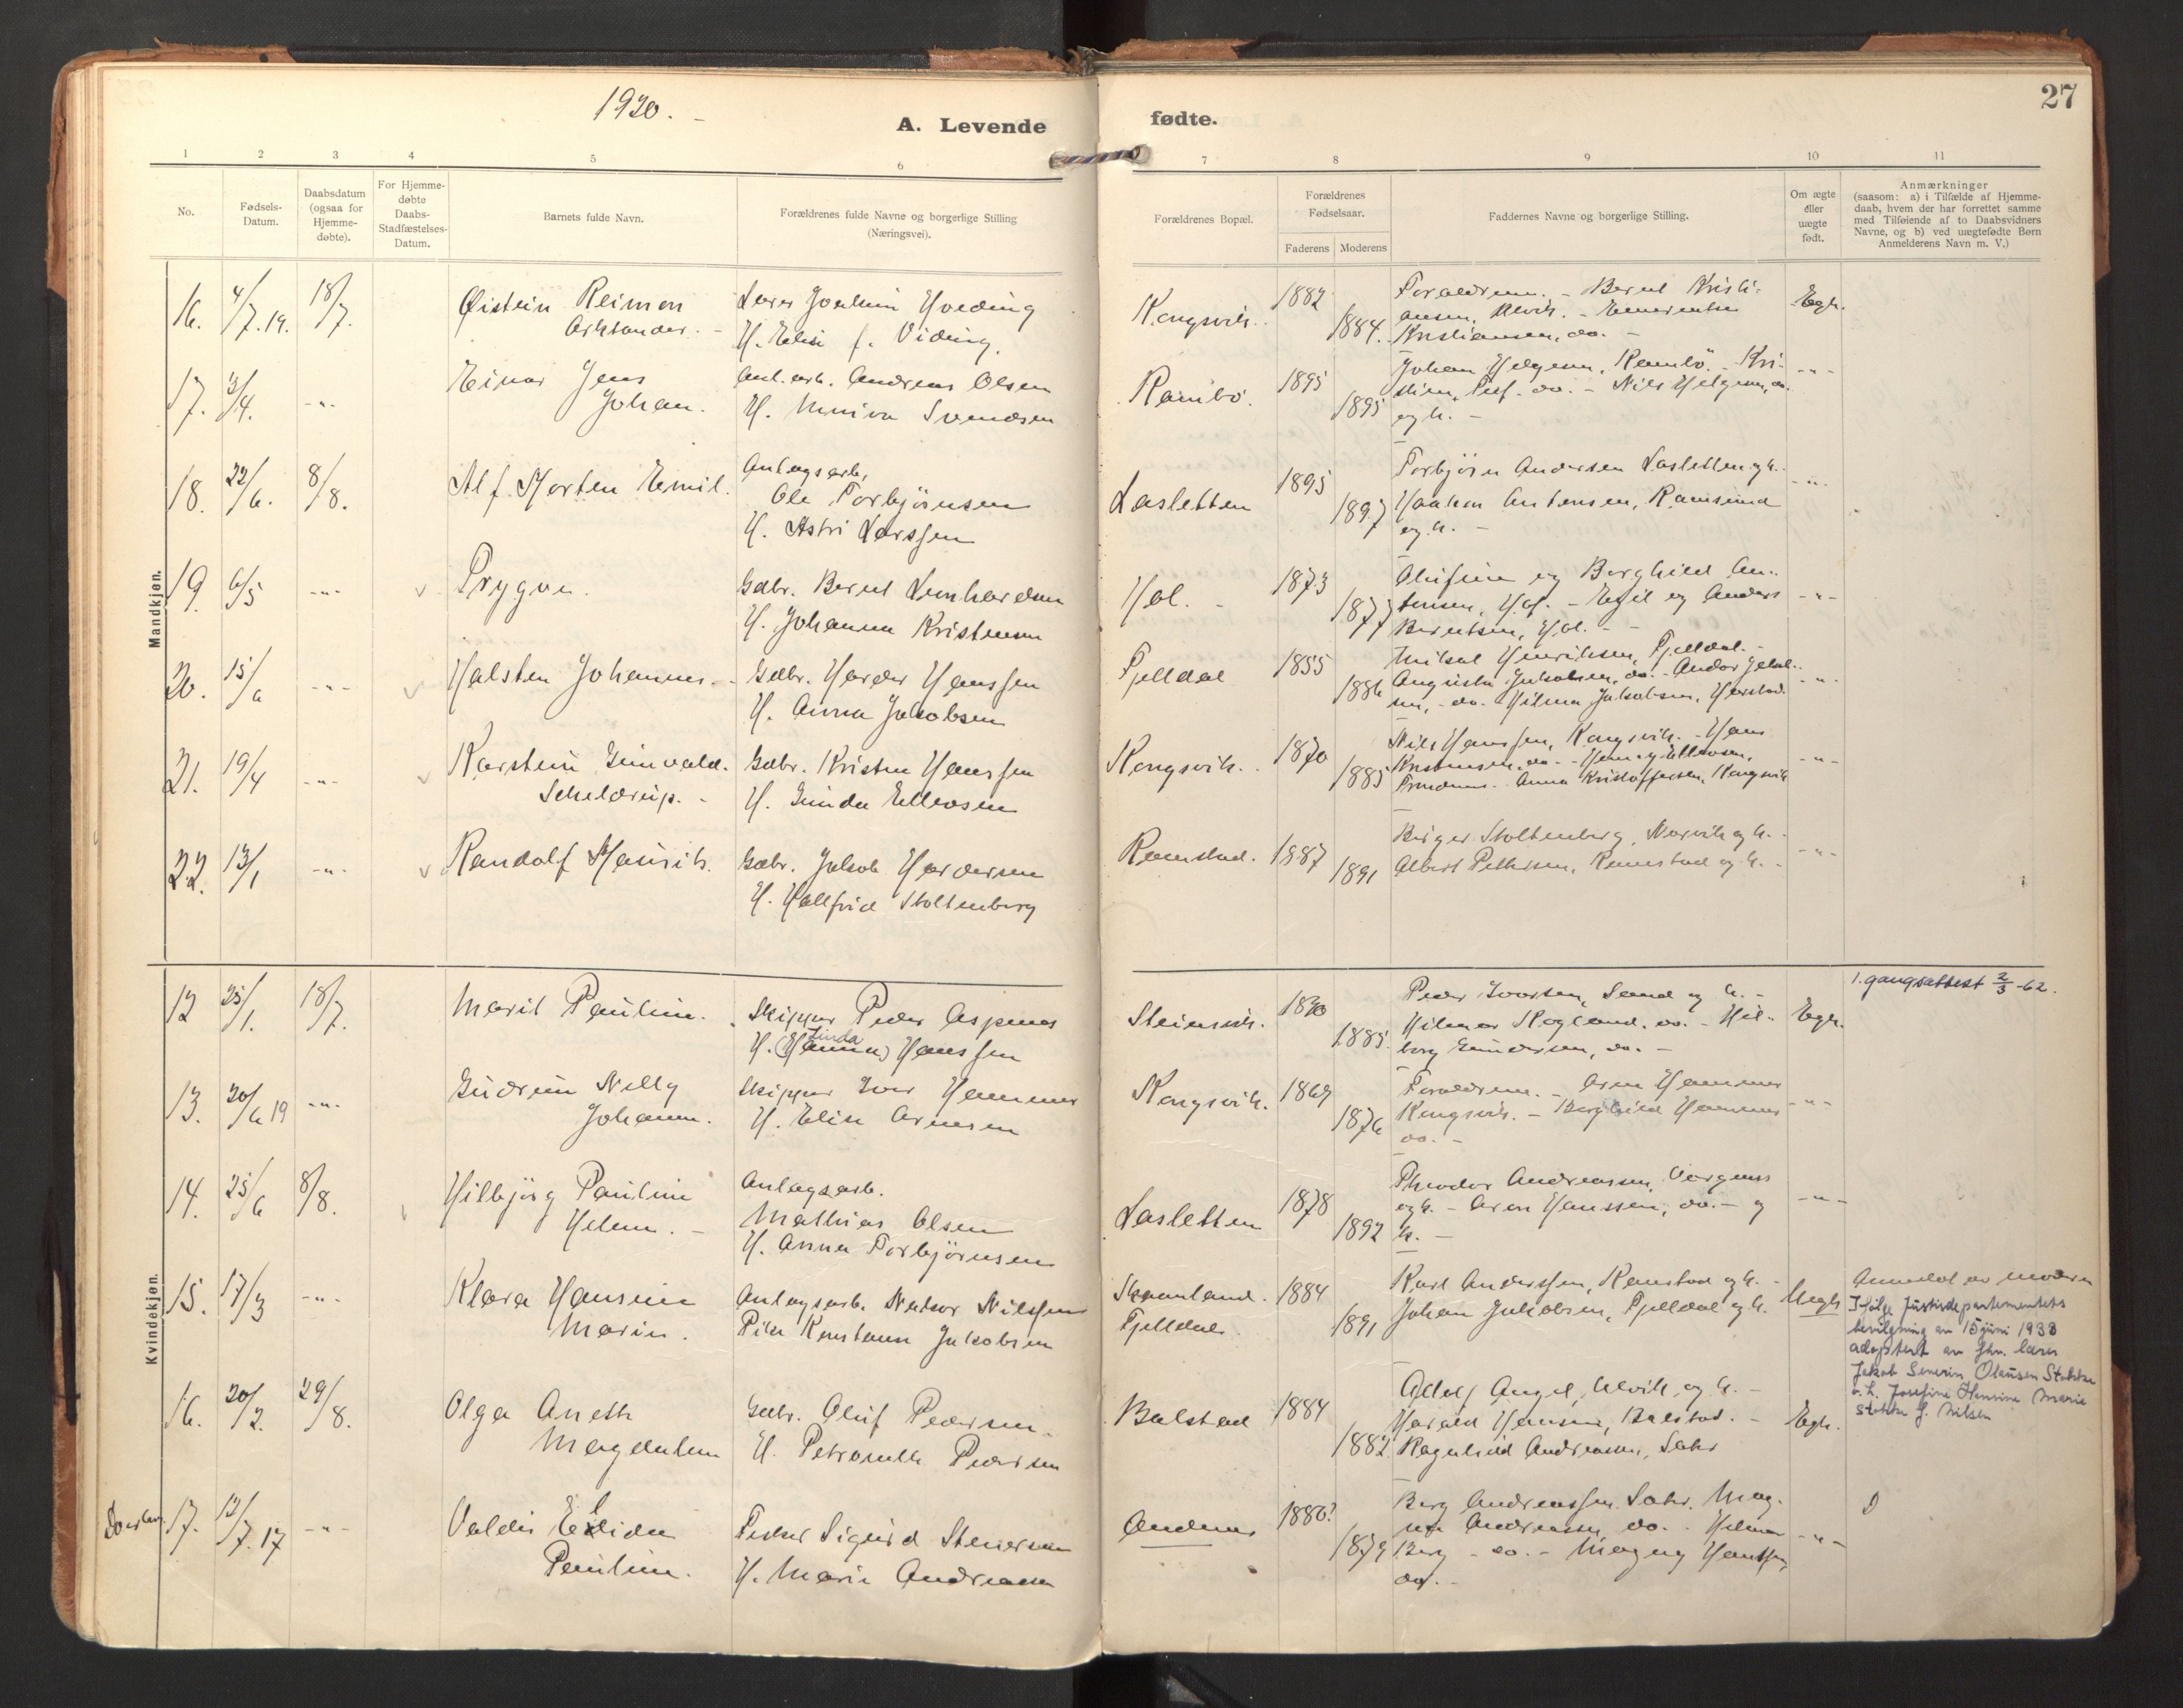 1920. -
A. Levende
fødte.
27
1
2
3
4
5
6
7
8
9
10
11
No.
Fødsels-
Datum.
Daabsdatum
(ogsaa for
Hjemme-
døbte).
For Hjemme-
døbte
Daabs-
Stadfæstelses-
Datum.
Barnets fulde Navn.
Forældrenes fulde Navne og borgerlige Stilling
(Næringsvei).
Forældrenes Bopæl.
Forældrenes
Fødselsaar.
Faderens
Moderens
Faddernes Navne og borgerlige Stilling.
Om ægte
eller
uægte
født.
Anmærkninger
(saasom: a) i Tilfælde af Hjemme-
daab, hvem der har forrettet samme
med Tilføiende af to Daabsvidners
Navne, og b) ved uægtefødte Børn
Anmelderens Navn m. V.)
Mandkjøn.
16. 4/7.19. 18/7. Øistein Reimon
Lærer Joakim Hveding
H. Elise f. Viding.
Kongsvik. 1882 1884.
Forældrene. - Bernt Kristi-
ansen, Ulvik. -
Kristiansen, do. -
Egte.
17. 3/4. -"- Einar Jens
Johan.
Anl.arb. Andreas Olsen
H. Miniva Svendsen
Rambø. 1895 1895
Johan Helgesen, Rambø. - Kri-
stine do. - Nils Helgesen, do.
og h. -
-"-
18. 22/6. 8/8. Alf Morten Emil.
Anlægsarb.
Ole Torbjørnsen
H. Astri Larssen
Lasletten 1895 1897
Torbjørn Andersen Lasletten og h.
Haakon Antonsen, Ramsund
og h. -
-"-
19. 6/5 -"- v Trygve.
Gdbr. Bernt Leonhardsen
H. Johanna Kristensen
Hol. - 1873 1877
Olufine og Borghild An-
tonsen, Hol. - Egil og Anders
Berntsen, Hol. -
-"-
20. 15/6 -"- v Halsten Johannes. -
Gdbr. Harder Hanssen
H. Anna Jakobsen
Fjelldal 1855 1886
Mikal Henriksen, Fjelldal. -
Augusta Jakobsen, do. - Andor Jakob-
sen, - do. Hilma Jakobsen, Harstad.
-"-
21. 19/4 -"- v Karstein Gunvald
Scheldrup. -
Gdbr. Kristen Hanssen
H. Gunda Ellevsen
Kongsvik. 1870 1885
Nils Hanssen, Kongsvik. - Hans
Kristensen, do. - Henny Ellevsen,
Trondenes. Anna Kristoffersen, Kongsvik
-"-
22. 13/1 -"- v Randolf Hauerik.
Gdbr. Jakob Hardersen
H. Hallfrid Stoltenberg
Ramstad. 1887 1891
Birger Stoltenberg, Narvik og h. -
Albert Pettersen, Ramstad og h. -
-"-
Kvindekjøn.
12 25/1. 18/7. Marit Pauline.
Skipper Peder Aspenes
Linda
H. (Hanna) Hanssen
Steinsvik. 1880 1885.
Peder Ivarsen, Sand og h. -
Hilmar Skogland, do. - Hil-
borg Gundersen, do. -
Egte.
1. gangsattest 2/3-62.
13. 20/6 19 -"- Gudrun Nelly
Johanne.
Skipper Ivar Hammer
H. Elise Arnesen
Kongsvik. 1869 1876
Forældrene. - Arne Hammer
Kongsvik. - Borghild Hammer
do. -
-"-
14. 25/6 8/8. v Hilbjørg Pauline
Helene. -
Anlægsarb.
Mathias Olsen
H. Anna Torbjørnsen
Lasletten 1878 1892
Theodor Andreassen,
og h. - Aron Hanssen, do. - og
h. -
-"-
15. 17/3 -"- Klara Hansine
Marie.
Anlægsarb. Nilssen
Pike Konstanse Jakobsen
Skaanland.
Fjelldal. 1884 1891
Karl Anderssen, Ramstad og h. -
Johan Jakobsen, Fjelldal og h.
Uegte
Anmeldt av moderen
Ifølge Justisdepartementets
bevilgning av 15 juni 1938
adoptert av fhv. lærer
Jakob Severin Olausen Stokke
o. h. Josefine Hansine Marie
Stokke f. Nilsen
16. 20/2. 29/8. Olga Aneth
Magdalene
Gdbr. Oluf Pedersen
H. Petronelle Pedersen
Balstad 1884 1882.
Adolf Angel, Ulvik, og h. -
Harald Hansen, Balstad. -
Ragnhild Andreassen,
Egte.
17. 12/7.17 -"- Valdis Elida
Pauline.
Fisker Sigurd Stenersen
H. Marie Andreassen
Andenes 1880? 1879
Berg Andreassen. Mag-
Andreassen do. - Hilmar
Berg - do. - Magny Hanssen,
do. -
-"-
D